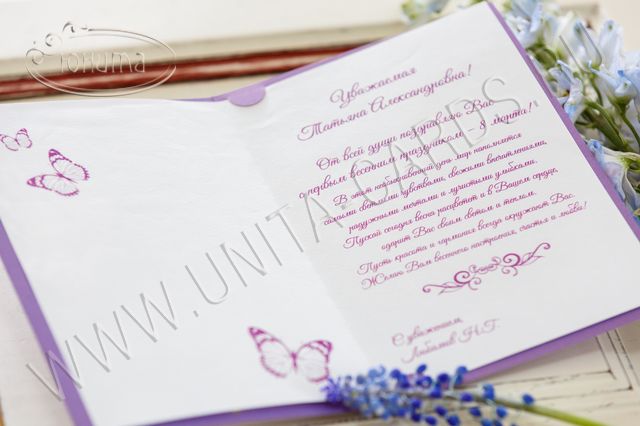 Юнита
Уважаемая
Татьяна Александровна!
От всей души поздравляю Вас
с первым весенним праздником - 8 марта!
В этот необыкновенный день мир наполнится
самыми светлыми чувствами, свежими впечатлениями,
радужными мечтами и лучистыми улыбками.
Пускай сегодня весна расцветет и в Вашем сердце,
одарит Вас своим светом и теплом.
Пусть красота и гармония всегда окружают Вас
Желаю Вам весеннего настроения, счастья и любви!
С уважением,
Н.Г.
WWW.UNITA-CARDS.